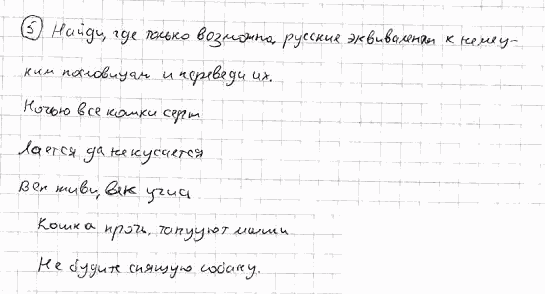 ⑤ Найди, где только возможно, русские эквиваленты к немец-
ким пословицам и переведи их.
Ночью все кошки серы
Лается да не кусается
Век живи, век учись
Кошка прочь, танцуют мыши
Не будите спящую собаку.